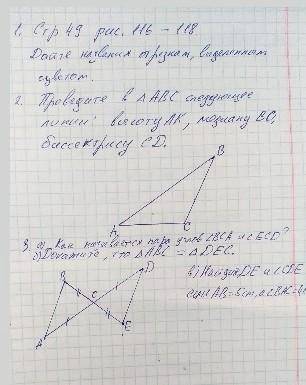 1. Стр 49 рис. 116 – 118.
Дайте названия отрезкам, выделенным
цветом.
2. Проведите в △ABC следующие
линии: высоту AK, медиану BO,
биссектрису CD.
B
A
C
3. а) Как называется пара углов ∠BCA и ∠ECD?
б) Докажите, что △ABC = △DEC.
B
D
C
A
E
в) Найдите DE и ∠CDE
если AB=5cm, ∠BAC=